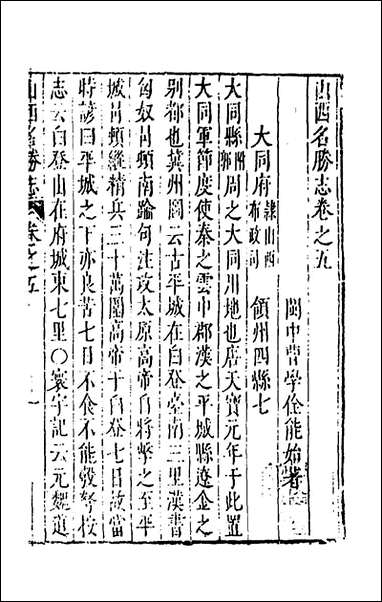 山西名勝志卷之五
閩中曹學佺能始著
大同府隷山西布政司領州四縣七
大同縣附郭周之大同川地也唐天寶元年于此置
大同軍節度使秦之雲中郡漢之平城縣遼金之
別都也冀州圖云古平城在白登臺南三里漢書
匈奴冒頓南踰句注攻太原高帝自將擊之至平
城冒頓縱精兵三十萬圍高帝于白登七日故當
時諺曰平城之下亦良苦七日不食不能彀弩按
志云白登山在府城東七里〇寰宇記云元魏道
山西名勝志 卷之五 一